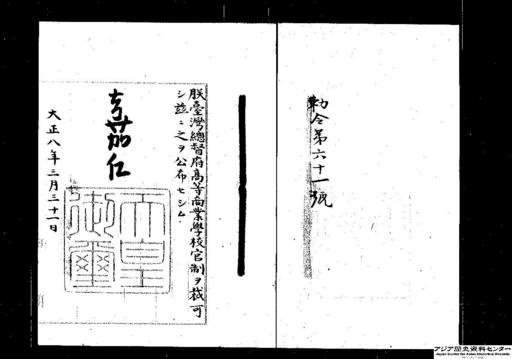 勅令第六十一號
朕臺灣總督府高等商業學校官制ヲ裁可
シ茲ニ之ヲ公布セシム
嘉仁
天皇
御璽
大正八年三月三十一日
アジア歴史資料センター
Japan Center for Asian Historical Records